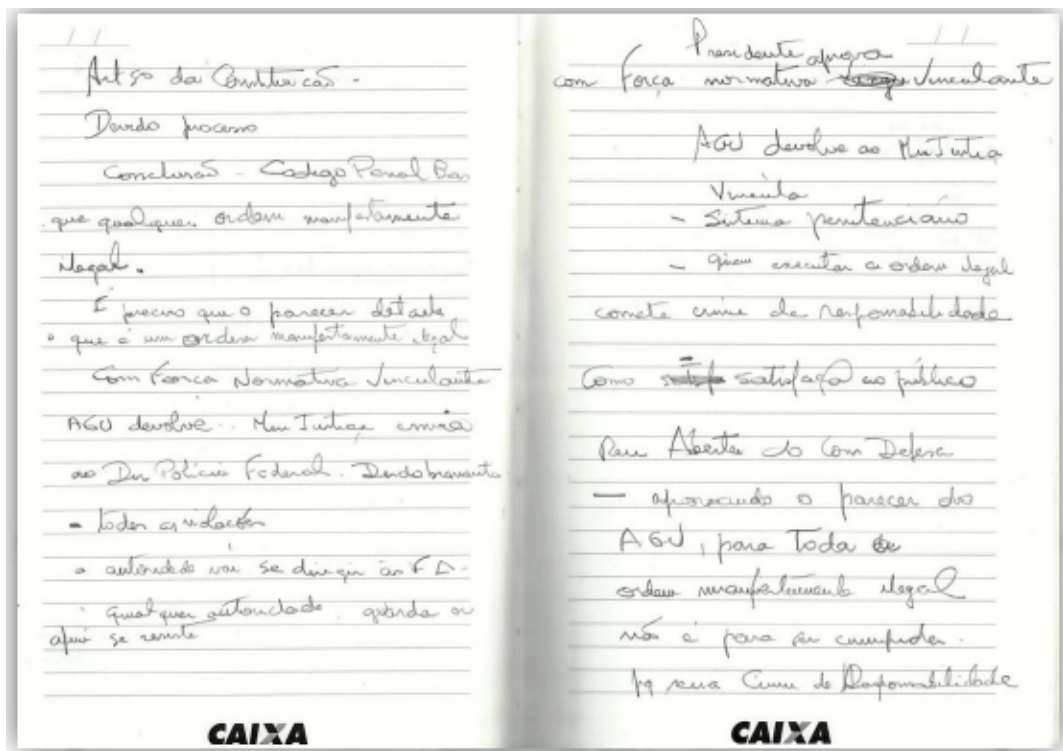 Art 5o da Constituição -
Devido processo
Conclusão - Codigo Penal Bra
que qualquer ordem manifestamente
ilegal.
É preciso que o parecer detalhe
o que é um ordem manifestamente ilegal
Com Força Normativa Vinculante
AGU devolve.. Min Justiça envia
ao Dir Polícia Federal. Desdobramento
- todas as violações
a autoridade vai se dirigir às FA-
qualquer autoridade guarda ou
se
CAIXA
Presidente aprova
com Força normativa Vinculante
AGU devolve ao Min Justiça
Vincula
- Sistema penitenciário
- quem executar a ordem ilegal
comete crime de responsabilidade
Como satisfação ao público
Aberta do Com Defesa
- aprovando o parecer do
AGU, para toda
ordem manifestamente ilegal
não é para ser cumprida.
pq seria Crime de Responsabilidade
CAIXA